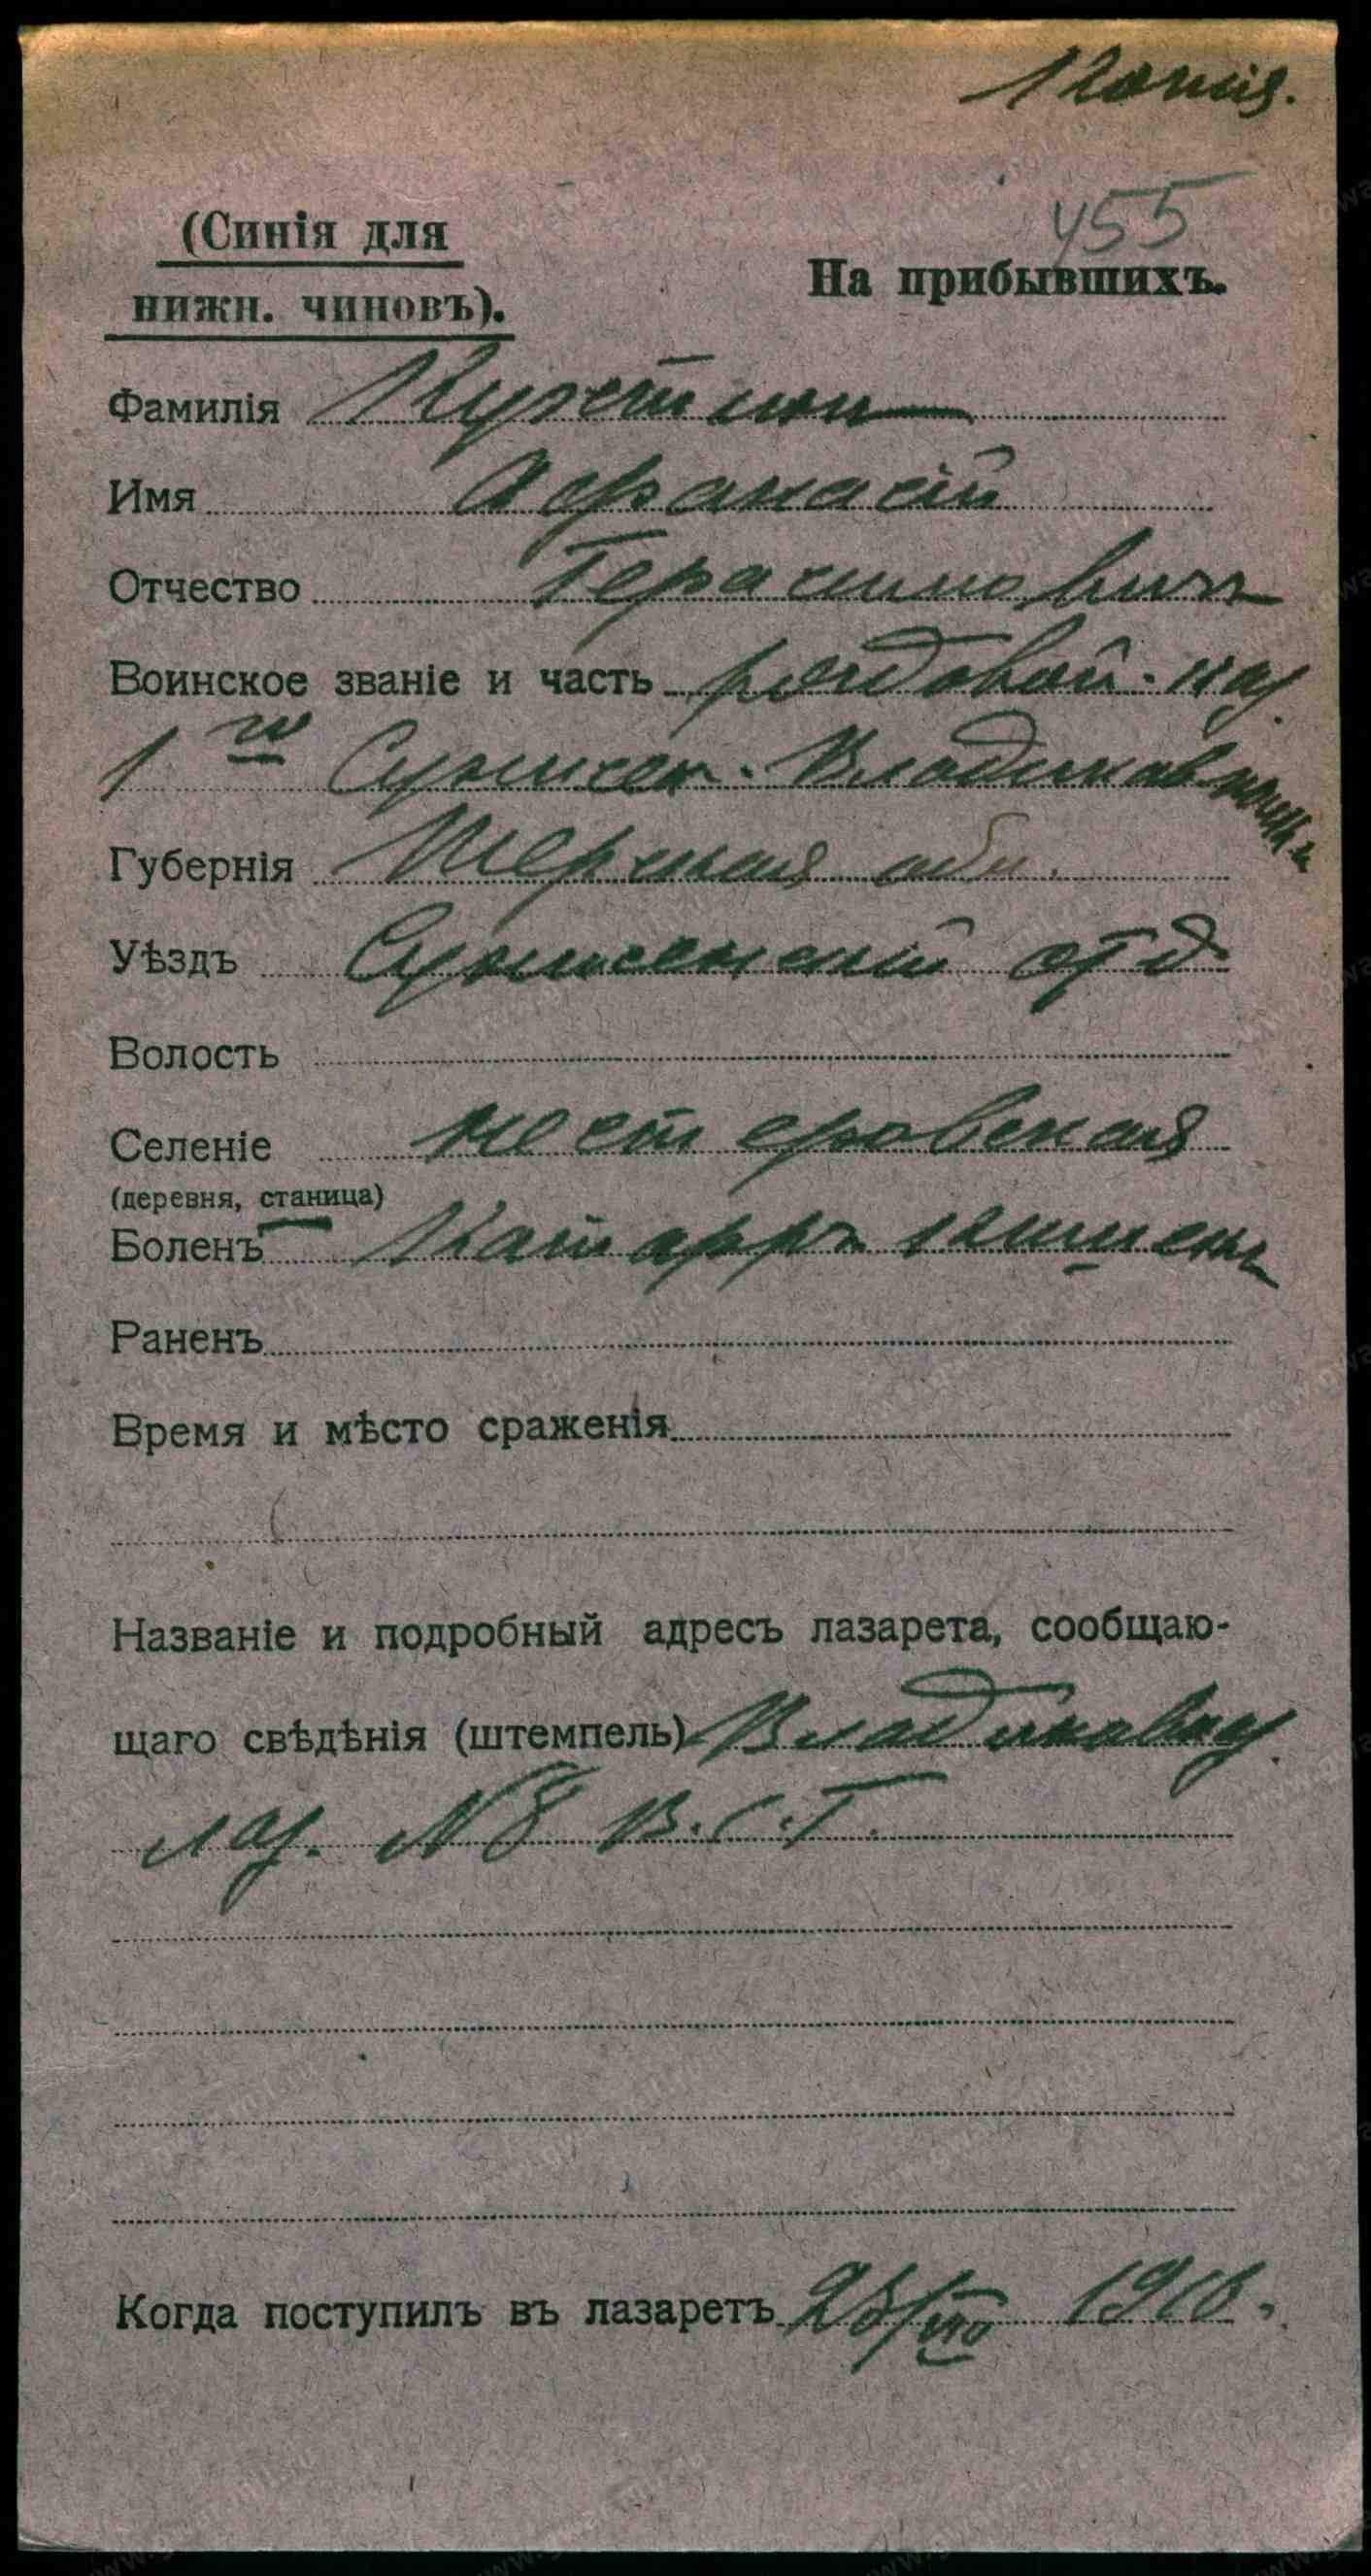 Копія.
455
(Синія для
нижн. чиновъ).
На прибывшихъ.
Фамилія
Имя Афанасій
Отчество Герасимовичъ
Воинское званіе и часть рядовой каз.
1го Сунженск. Владикавк
Губернія Терская обл.
Уѣздъ Сунженскій отд
Волость
Селеніе Нестеровская
(деревня, станица)
Боленъ Катарръ кишекъ
Раненъ
Время и мѣсто сраженія
Названіе и подробный адресъ лазарета, сообщаю-
щаго свѣдѣнія (штемпель) Владикавказ
лаз. № 8 В.С.Г.
Когда поступилъ въ лазаретъ 1916.